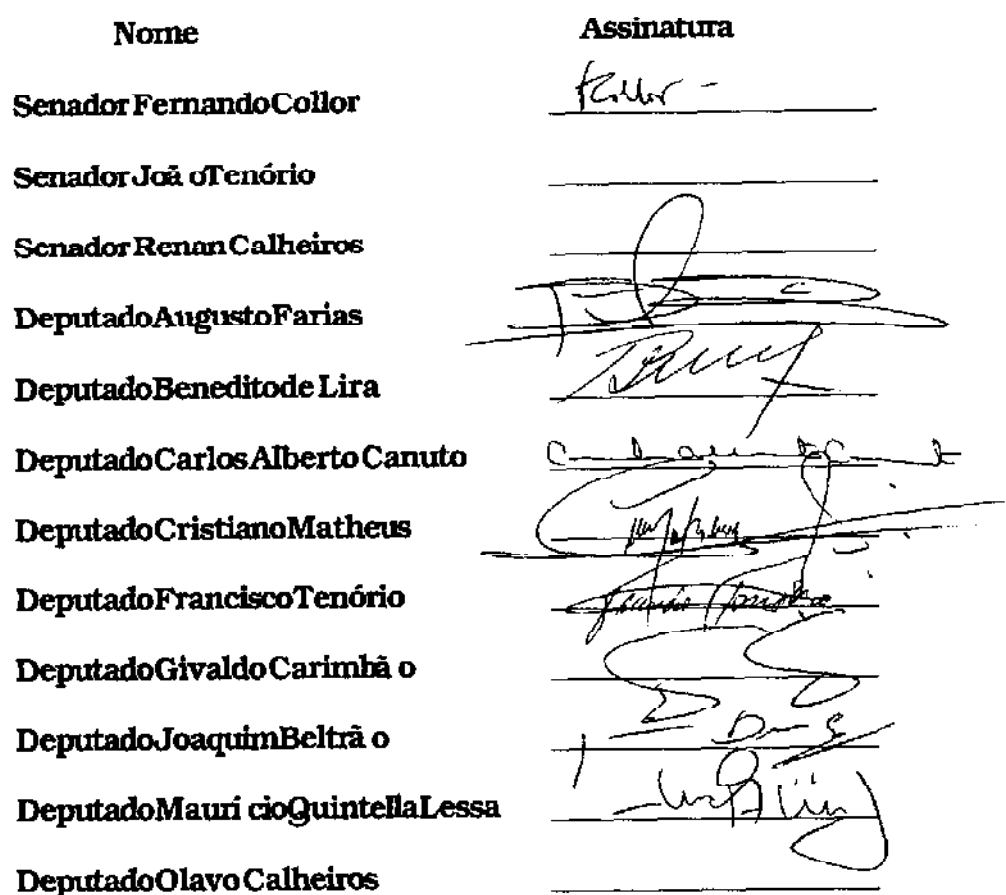 Nome Assinatura
Senador Fernando Collor Collor -
Senador Joã o Tenório
Senador Renan Calheiros
Deputado Augusto Farias
Deputado Benedito de Lira
Deputado Carlos Alberto Canuto
Deputado Cristiano Matheus
Deputado Francisco Tenório
Deputado Givaldo Carimbã o
Deputado Joaquim Beltrã o
Deputado Maurí cio Quintella Lessa
Deputado Olavo Calheiros